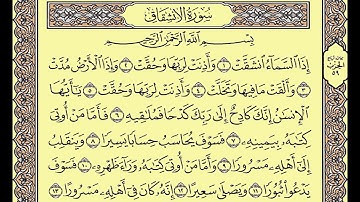 سُورَةُ الِانشِقَاقِ
بِسْمِ اللَّهِ الرَّحْمَٰنِ الرَّحِيمِ
إِذَا السَّمَاءُ انشَقَّتْ ۝١ وَأَذِنَتْ لِرَبِّهَا وَحُقَّتْ ۝٢ وَإِذَا الْأَرْضُ مُدَّتْ
۝٣ وَأَلْقَتْ مَا فِيهَا وَتَخَلَّتْ ۝٤ وَأَذِنَتْ لِرَبِّهَا وَحُقَّتْ ۝٥ يَٰأَيُّهَا
الْإِنسَٰنُ إِنَّكَ كَادِحٌ إِلَىٰ رَبِّكَ كَدْحًا فَمُلَٰقِيهِ ۝٦ فَأَمَّا مَنْ أُوتِيَ
كِتَٰبَهُ بِيَمِينِهِ ۝٧ فَسَوْفَ يُحَاسَبُ حِسَابًا يَسِيرًا ۝٨ وَيَنقَلِبُ
إِلَىٰ أَهْلِهِ مَسْرُورًا ۝٩ وَأَمَّا مَنْ أُوتِيَ كِتَٰبَهُ وَرَاءَ ظَهْرِهِ ۝١٠ فَسَوْفَ
يَدْعُو ثُبُورًا ۝١١ وَيَصْلَىٰ سَعِيرًا ۝١٢ إِنَّهُ كَانَ فِي أَهْلِهِ مَسْرُورًا ۝١٣
الحزب
٥٩